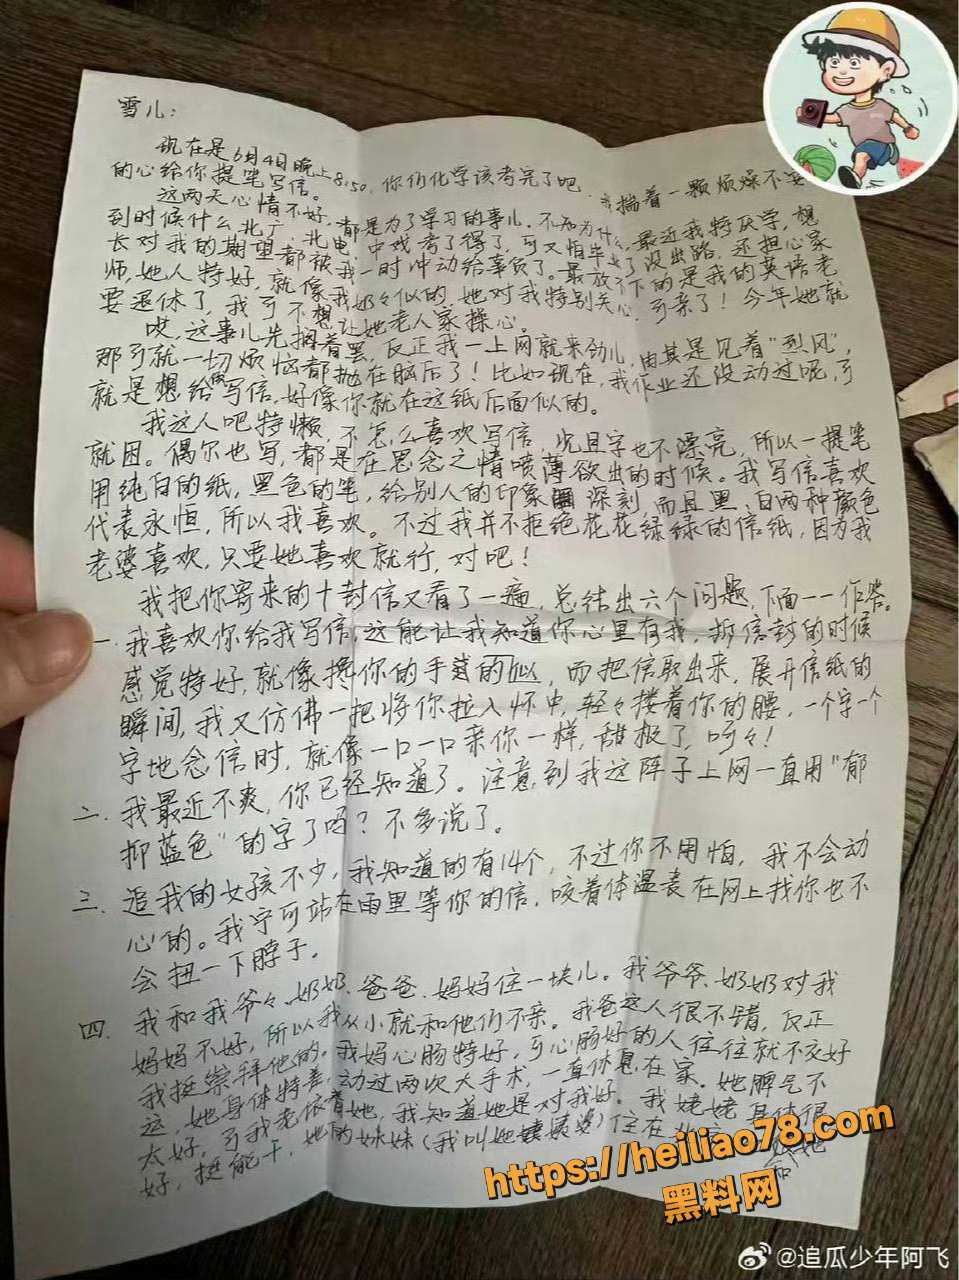 雪儿：
现在是6月4日晚上8:50，你们化学该考完了吧，我揣着一颗烦燥不安
的心给你提笔写信。
这两天心情不好，都是为了学习的事儿。不知为什么，最近我特厌学，想
到时候什么北广、北电、中戏考了得了，可又怕毕业了没出路，还担心家
长对我的期望都被我一时冲动给辜负了。最放不下的是我的英语老
师，她人特好，就像我奶々似的，她对我特别关心，可亲了！今年她就
要退休了，我可不想让她老人家操心。
哎，这事儿先搁着罢，反正我一上网就来劲儿，由其是见着“烈风”，
那可就一切烦恼都抛在脑后了！比如现在，我作业还没动过呢，可
就是想给你写信，好像你就在这纸后面似的。
我这人吧特懒，不怎么喜欢写信，况且字也不漂亮，所以一提笔
就困。偶尔也写，都是在思念之情喷薄欲出的时候。我写信喜欢
用纯白的纸，黑色的笔，给别人的印象深刻，而且黑、白两种颜色
代表永恒，所以我喜欢。不过我并不拒绝花花绿绿的信纸，因为我
老婆喜欢，只要她喜欢就行，对吧！
我把你寄来的十封信又看了一遍，总结出六个问题，下面一一作答。
一.我喜欢你给我写信，这能让我知道你心里有我，拆信封的时候
感觉特好，就像搀你的手似的，而把信取出来，展开信纸的
瞬间，我又仿佛一把将你拉入怀中，轻々搂着你的腰，一个字一个
字地念信时，就像一口一口亲你一样，甜极了，呵々！
二.我最近不爽，你已经知道了。注意到我这阵子上网一直用“郁
抑蓝色”的字了吗？不多说了。
三.追我的女孩不少，我知道的有14个，不过你不用怕，我不会动
心的。我宁可站在雨里等你的信，咬着体温表在网上找你也不
会扭一下脖子。
四.我和我爷々、奶奶、爸爸、妈妈住一块儿。我爷爷、奶奶对我
妈妈不好，所以我从小就和他们不亲。我爸这人很不错，反正
我挺崇拜他的。我妈心肠特好，可心肠好的人往往就不交好
运，她身体特差，动过两次大手术，一直休息在家。她脾气不
太好，可我老依着她，我知道她是对我好。我姥姥身体很
好，挺能干，她的妹妹（我叫她姨婆）住在北京
https://heiliao78.com
黑料网
@追瓜少年阿飞